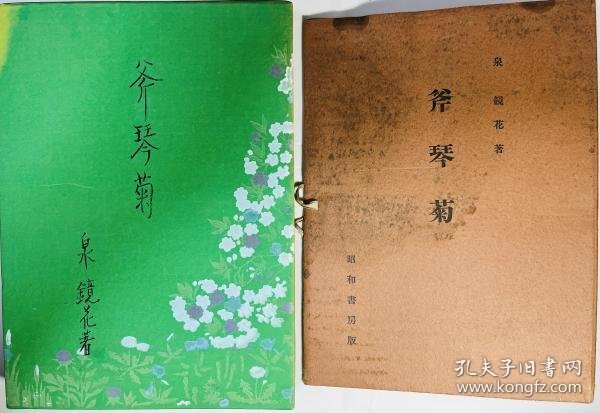 斧琴菊
泉鏡花著
泉鏡花著
斧琴菊
昭和書房版
孔夫子旧书网
www.kongfz.com